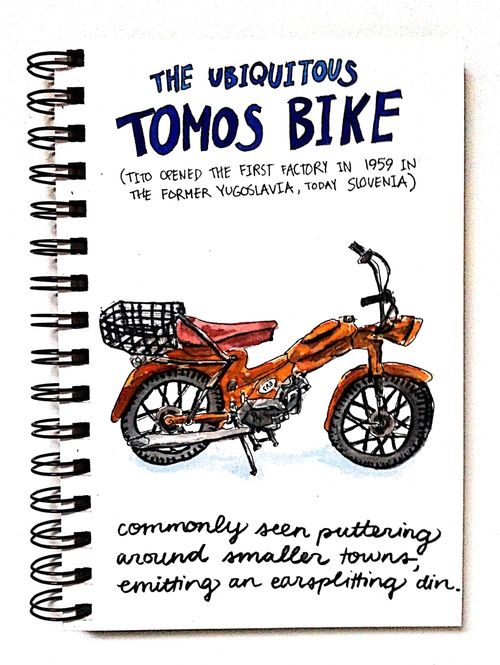 THE UBIQUITOUS
TOMOS BIKE
(TITO OPENED THE FIRST FACTORY IN 1959 IN
THE FORMER YUGOSLAVIA, TODAY SLOVENIA)
commonly seen puttering
around smaller towns,
emitting an earsplitting din.